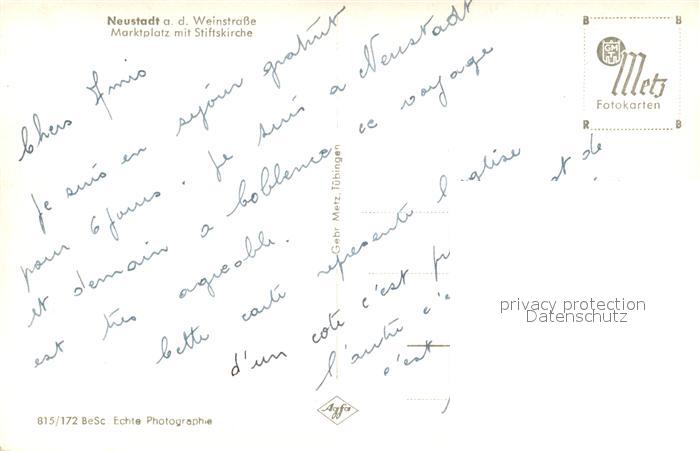 Neustadt a. d. Weinstraße
Marktplatz mit Stiftskirche
B B
GM
Metz
Fotokarten
R B
Chers Amis
Je suis en sejour gratuit
pour 6 jours. Je suis a Neustadt
et demain a Coblence ce voyage
est très agreable.
Cette carte represente l'eglise et de
d'un cote c'est
l'autre c'e
c'est
Gebr. Metz, Tübingen
privacy protection
Datenschutz
Agfa
815/172 BeSc. Echte Photographie